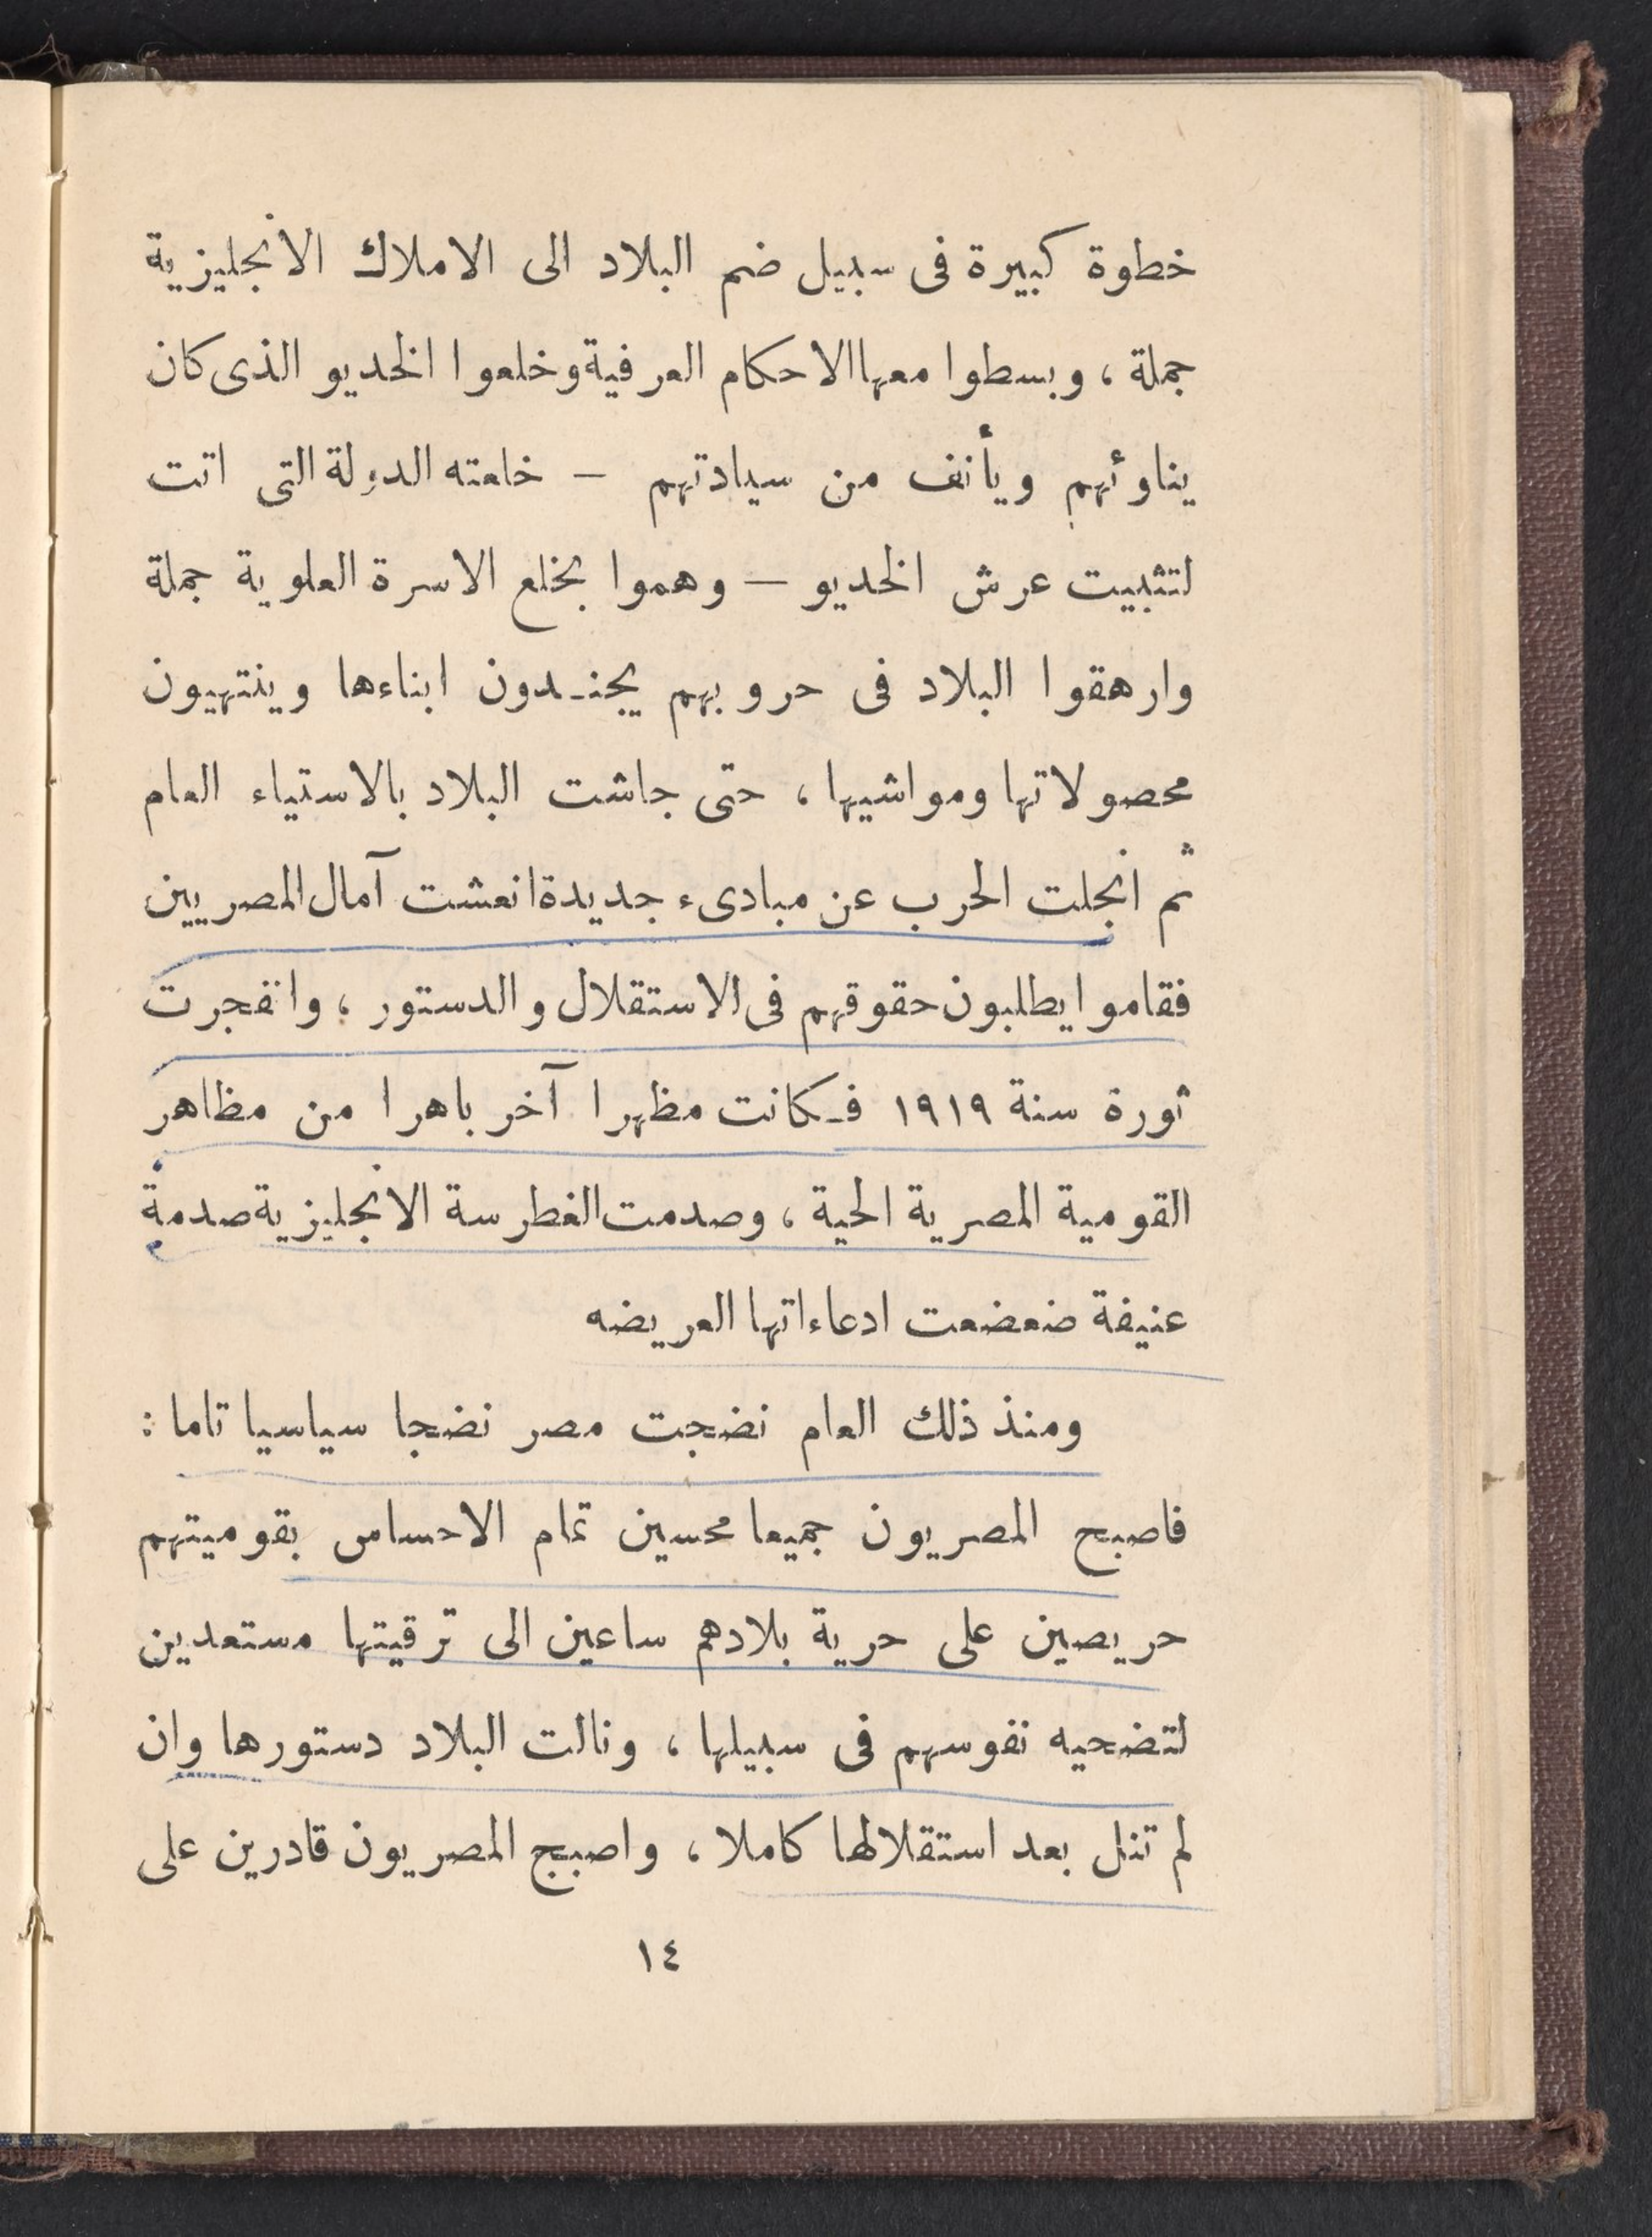 خطوة كبيرة فى سبيل ضم البلاد الى الاملاك الانجليزية
جملة ، وبسطوا معها الاحكام العرفية وخلعوا الخديو الذى كان
يناوئهم ويأنف من سيادتهم — خلعته الدولة التى اتت
لتثبيت عرش الخديو — وهموا بخلع الاسرة العلوية جملة
وارهقوا البلاد فى حروبهم يجنـدون ابناءها وينتهبون
محصولاتها ومواشيها ، حتى جاشت البلاد بالاستياء العام
ثم انجلت الحرب عن مبادىء جديدة انعشت آمال المصريين
فقاموا يطلبون حقوقهم فى الاستقلال والدستور ، وانفجرت
ثورة سنة ١٩١٩ فـكانت مظهرا آخر باهرا من مظاهر
القومية المصرية الحية ، وصدمت الغطرسة الانجليزية صدمة
عنيفة ضعضعت ادعاءاتها العريضه
ومنذ ذلك العام نضجت مصر نضجا سياسيا تاما :
فاصبح المصريون جميعا محسين تمام الاحساس بقوميتهم
حريصين على حرية بلادهم ساعين الى ترقيتها مستعدين
لتضحيه نفوسهم فى سبيلها ، ونالت البلاد دستورها وان
لم تنل بعد استقلالها كاملا ، واصبح المصريون قادرين على
١٤